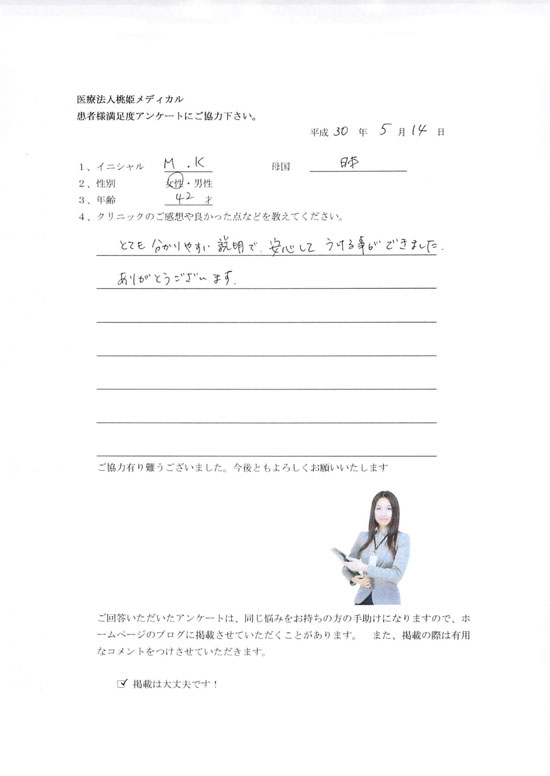 医療法人桃姫メディカル
患者様満足度アンケートにご協力下さい。
平成 30 年 5 月 14 日
1、イニシャル M.K 母国 日本
2、性別 女性・男性
3、年齢 42 才
4、クリニックのご感想や良かった点などを教えてください。
とても分かりやすい説明で、安心してうける事ができました。
ありがとうございます。
ご協力有り難うございました。今後ともよろしくお願いいたします
ご回答いただいたアンケートは、同じ悩みをお持ちの方の手助けになりますので、ホ
ームページのブログに掲載させていただくことがあります。 また、掲載の際は有用
なコメントをつけさせていただきます。
☑ 掲載は大丈夫です！